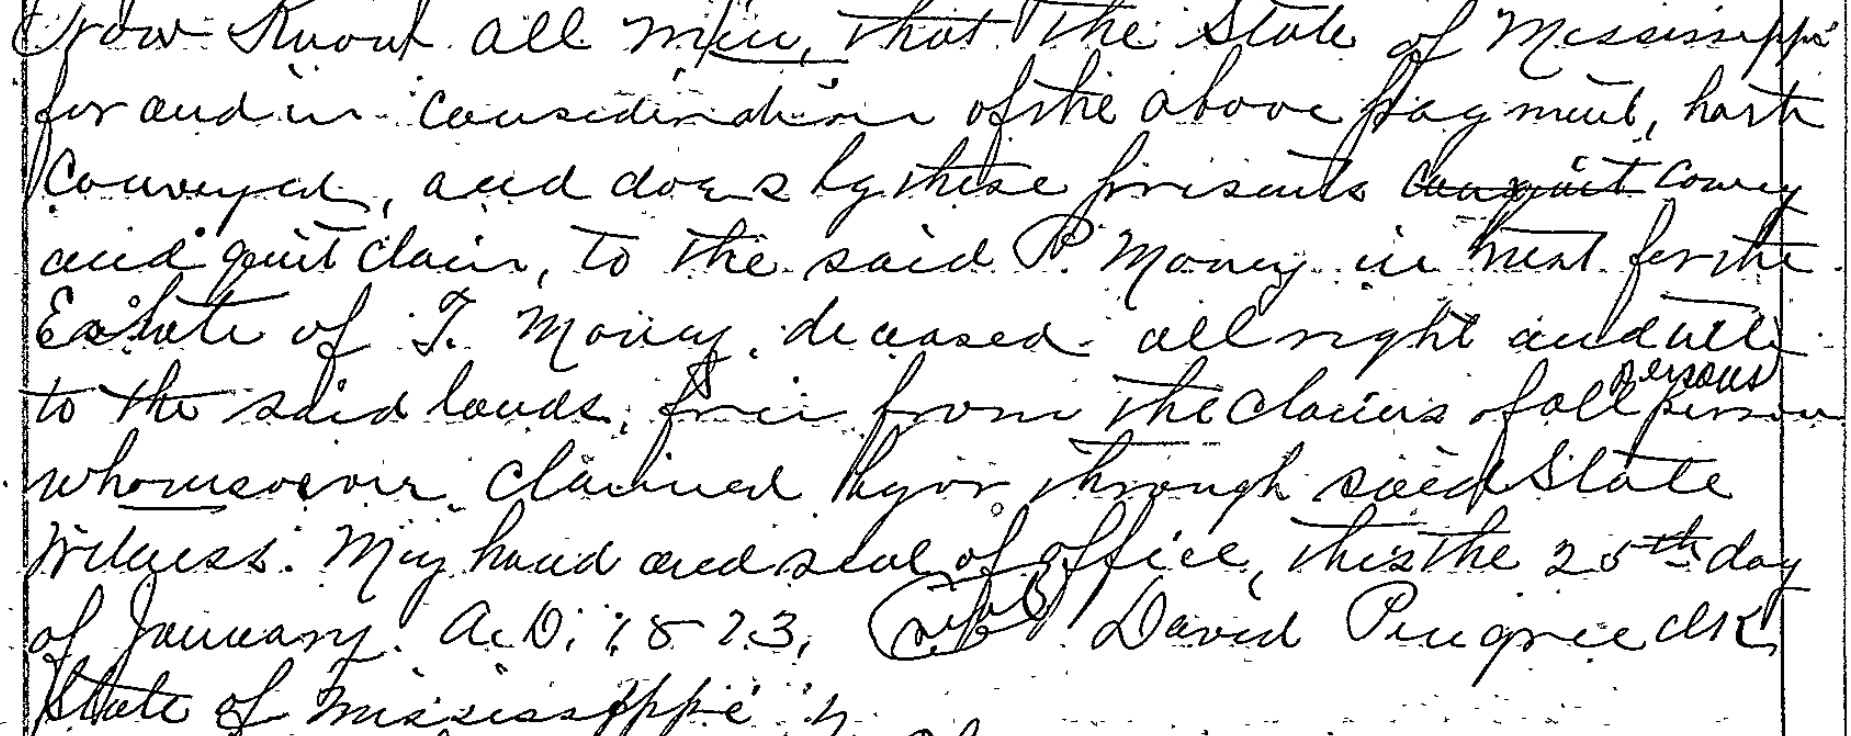 Now Know all men, that the State of Mississippi
for and in consideration of the above payment, hath
conveyed, and does by these presents convey
and quit claim, to the said P. Money in trust for the
Estate of T. Money, deceased all right and title
to the said lands, free from the claims of all persons person
whomsoever claimed by or through said State
Witness. My hand and seal of office, this the 25th day
of January. A.D. 1873, David Pingree clk
State of Mississippi